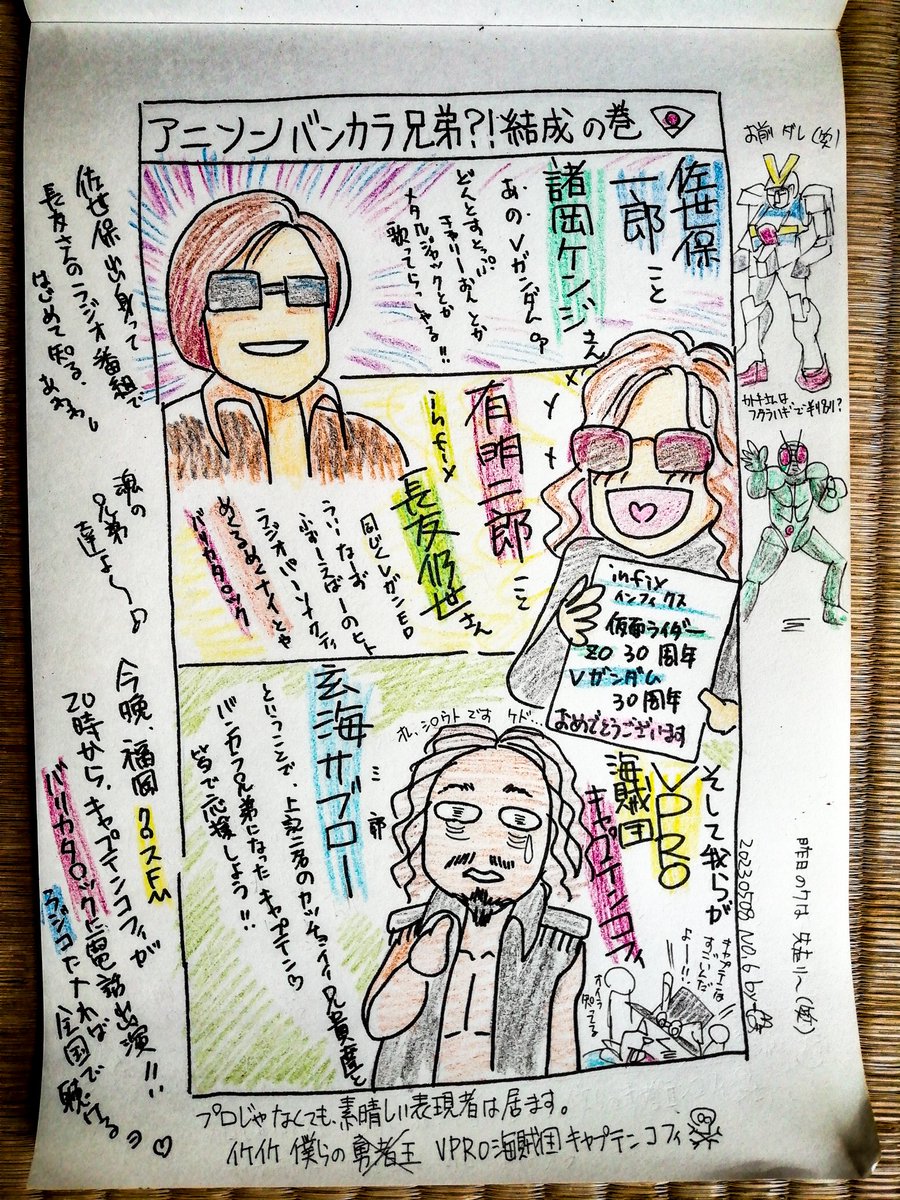 アニソンバンカラ兄弟?!結成の巻
お前ダレ(笑)
佐世保
一郎こと
諸岡ケンジさん
あの、VガンダムOP
どんとすとっぷ
きゃりーおんとか
メタルジャックとか
歌ってらっしゃる!!
佐世保出身って
長友さんのラジオ番組で
はじめて知る、
有明二郎こと
infix
長友仍世さん
同じくVガンED
うぃんなーず
ふぉーえばーのヒト
ラジオパーソナリティ
めくるめくナイトや
バリカタロック
infix
インフィクス
仮面ライダー
ZO 30周年
Vガンダム
30周年
おめでとうございます
魂の
兄弟
達よ〜
そして我らが
VPRO
海賊団
キャプテンコフィ
オレ、シロウトですケド…
玄海サブロー
三郎
ということで、上記二名のカッチョイイ兄貴達と
バンカラ兄弟になったキャプテン♡
皆で応援しよう!!
キャプテンは
すごいんだ
よー!!
オイラ
知ってる
今晩、福岡クロスFM
20時から、キャプテンコフィが
バリカタロックに電話出演!!
ラジコでナれば
全国で
聴ける♡
昨日のケは
20230508 No.6 by
プロじゃなくても、素晴しい表現者は居ます。
行け行け 僕らの勇者王 VPRO海賊団キャプテンコフィ